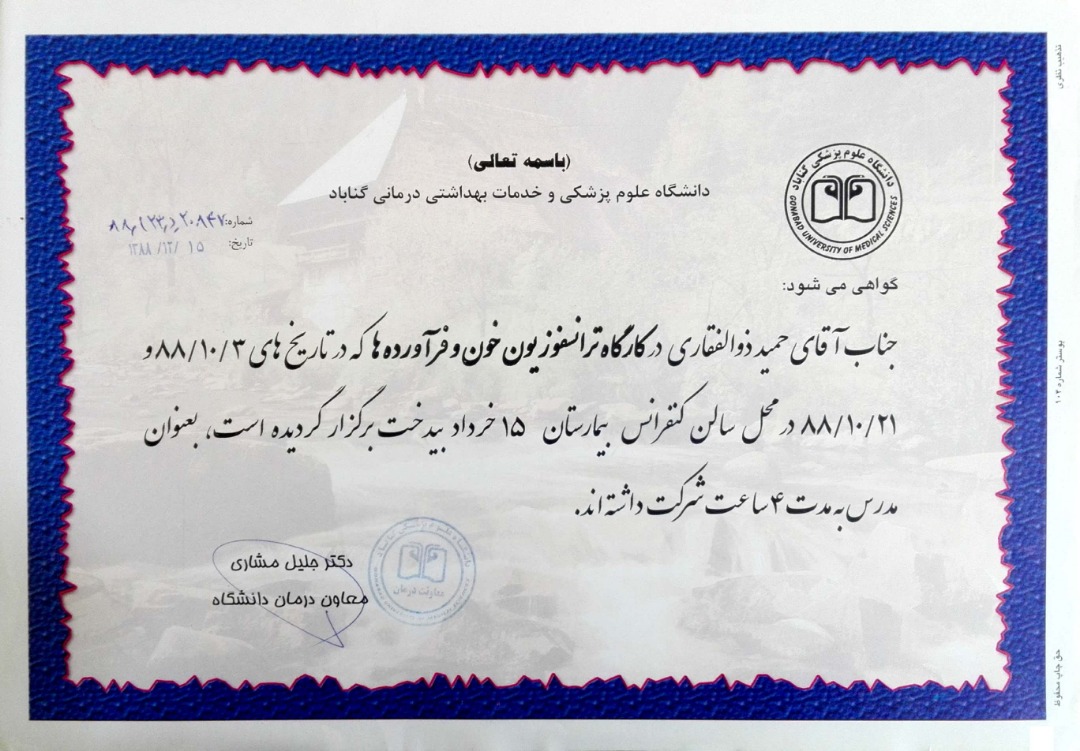 (باسمه تعالی)
دانشگاه علوم پزشکی و خدمات بهداشتی درمانی گناباد
دانشگاه علوم پزشکی گناباد
GONABAD UNIVERSITY OF MEDICAL SCIENCES
شماره:
تاریخ: ۱۳۸۸/۱۲/۱۵
گواهی می شود:
جناب آقای حمید ذوالفقاری در کارگاه ترانسفوزیون خون و فرآورده ها که در تاریخ های ۸۸/۱۰/۳ و
۸۸/۱۰/۲۱ در محل سالن کنفرانس بیمارستان ۱۵ خرداد بیدخت برگزار گردیده است، بعنوان
مدرس به مدت ۴ ساعت شرکت داشته اند.
دکتر جلیل مشاری
معاون درمان دانشگاه
معاونت درمان
تذهیب نظری
پوستر شماره ۱۰۲
حق چاپ محفوظ